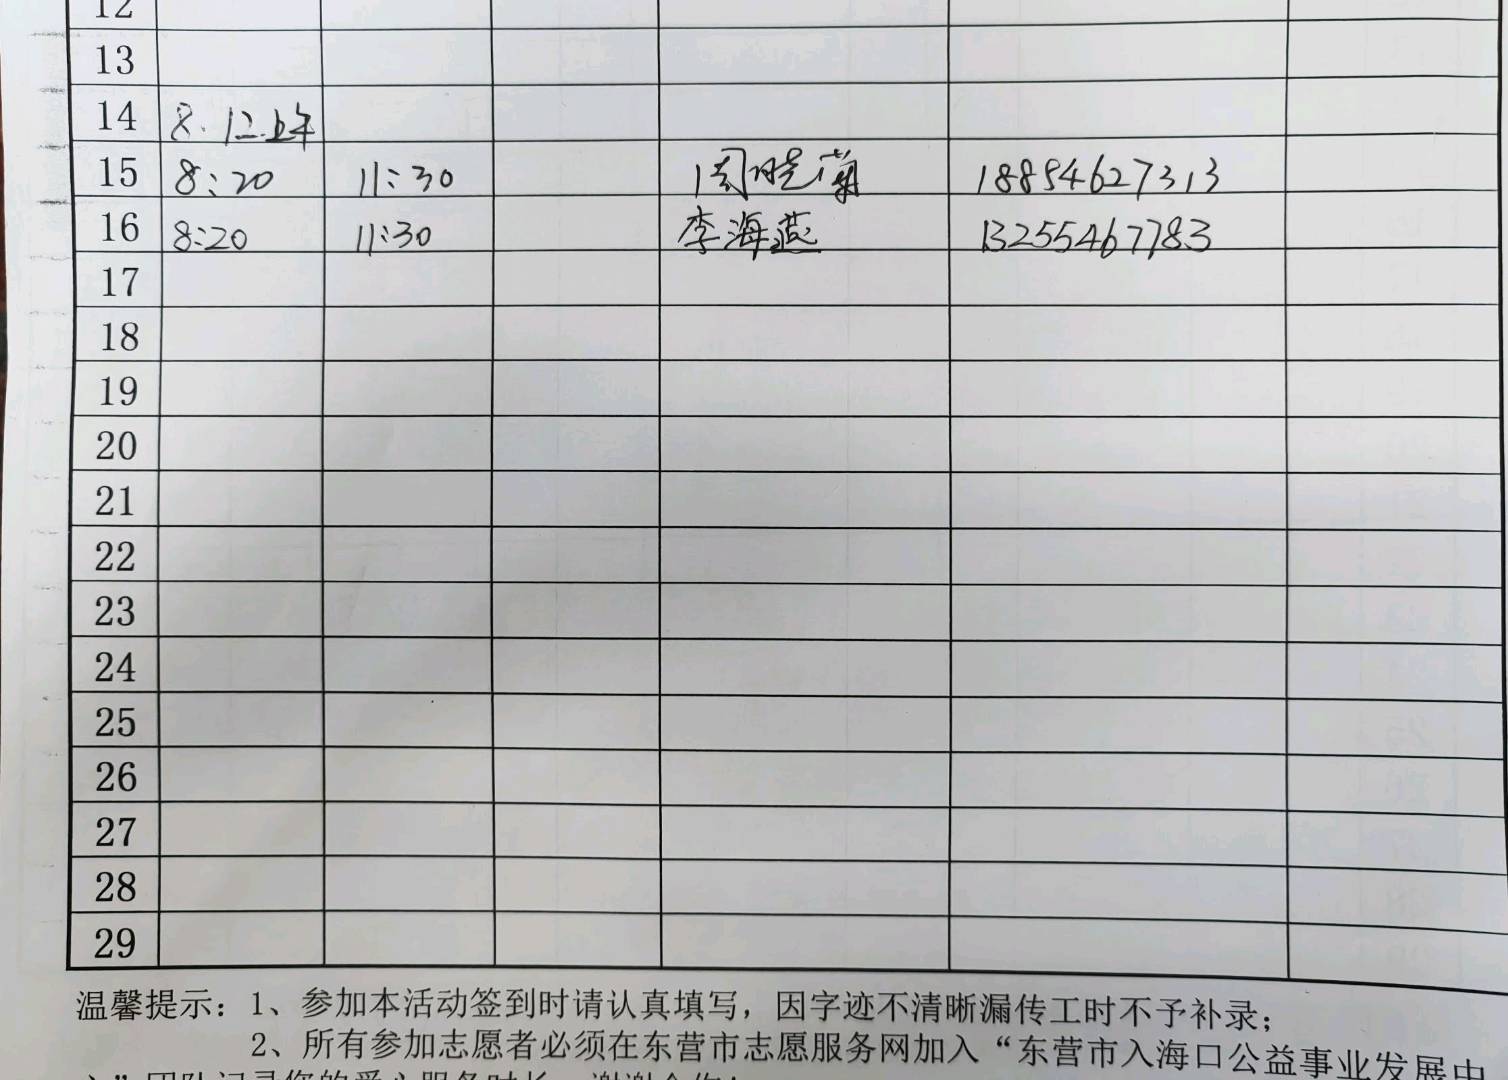 12
13
14 8.12上午
15 8:20 11:30 周晓蘭 18854627313
16 8:20 11:30 李海燕 13255467783
17
18
19
20
21
22
23
24
25
26
27
28
29
温馨提示：1、参加本活动签到时请认真填写，因字迹不清晰漏传工时不予补录；
2、所有参加志愿者必须在东营市志愿服务网加入“东营市入海口公益事业发展中
心”团队记录您的爱心服务时长，谢谢合作！